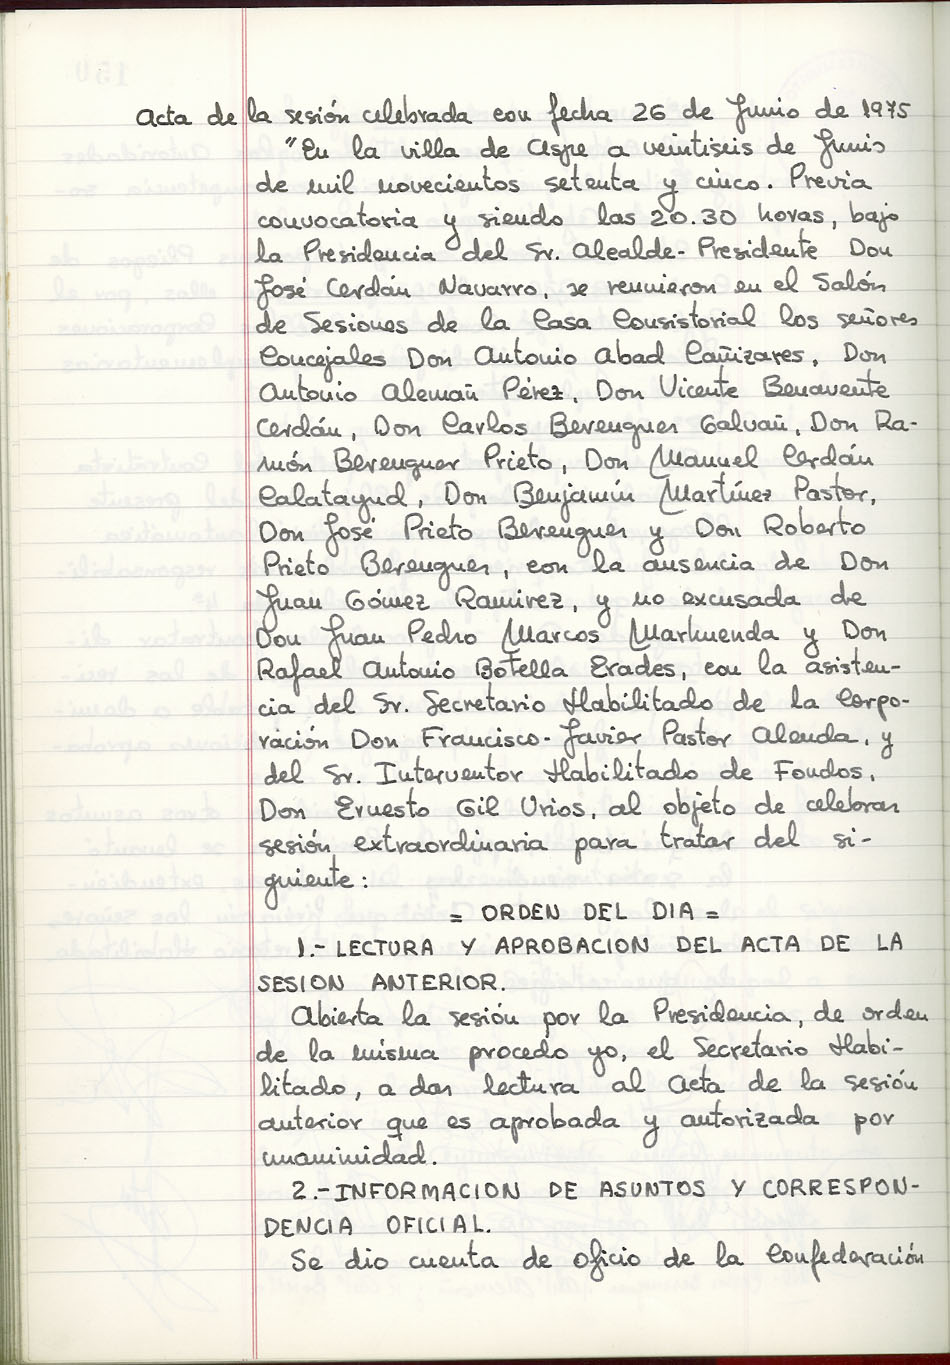 Acta de la sesión celebrada con fecha 26 de Junio de 1975
"En la villa de Aspe a veintiseis de Junio
de mil novecientos setenta y cinco. Previa
convocatoria y siendo las 20.30 horas, bajo
la Presidencia del Sr. Alcalde-Presidente Don
José Cerdán Navarro, se reunieron en el Salón
de Sesiones de la Casa Consistorial los señores
Concejales Don Antonio Abad Cañizares, Don
Antonio Alemañ Pérez, Don Vicente Benavente
Cerdán, Don Carlos Berenguer Galvañ, Don Ra-
món Berenguer Prieto, Don Manuel Cerdán
Calatayud, Don Benjamín Martínez Pastor,
Don José Prieto Berenguer y Don Roberto
Prieto Berenguer, con la ausencia de Don
Juan Gómez Ramirez, y no excusada de
Don Juan Pedro Marcos Markuenda y Don
Rafael Antonio Botella Erades, con la asisten-
cia del Sr. Secretario Habilitado de la Corpo-
ración Don Francisco-Javier Pastor Alenda, y
del Sr. Interventor Habilitado de Fondos,
Don Ernesto Gil Urios, al objeto de celebrar
sesión extraordinaria para tratar del si-
guiente:
= ORDEN DEL DIA =
1.- LECTURA Y APROBACION DEL ACTA DE LA
SESION ANTERIOR.
Abierta la sesión por la Presidencia, de orden
de la misma procedo yo, el Secretario Habi-
litado, a dar lectura al Acta de la sesión
anterior que es aprobada y autorizada por
unanimidad.
2.- INFORMACION DE ASUNTOS Y CORRESPON-
DENCIA OFICIAL.
Se dio cuenta de oficio de la Confederación